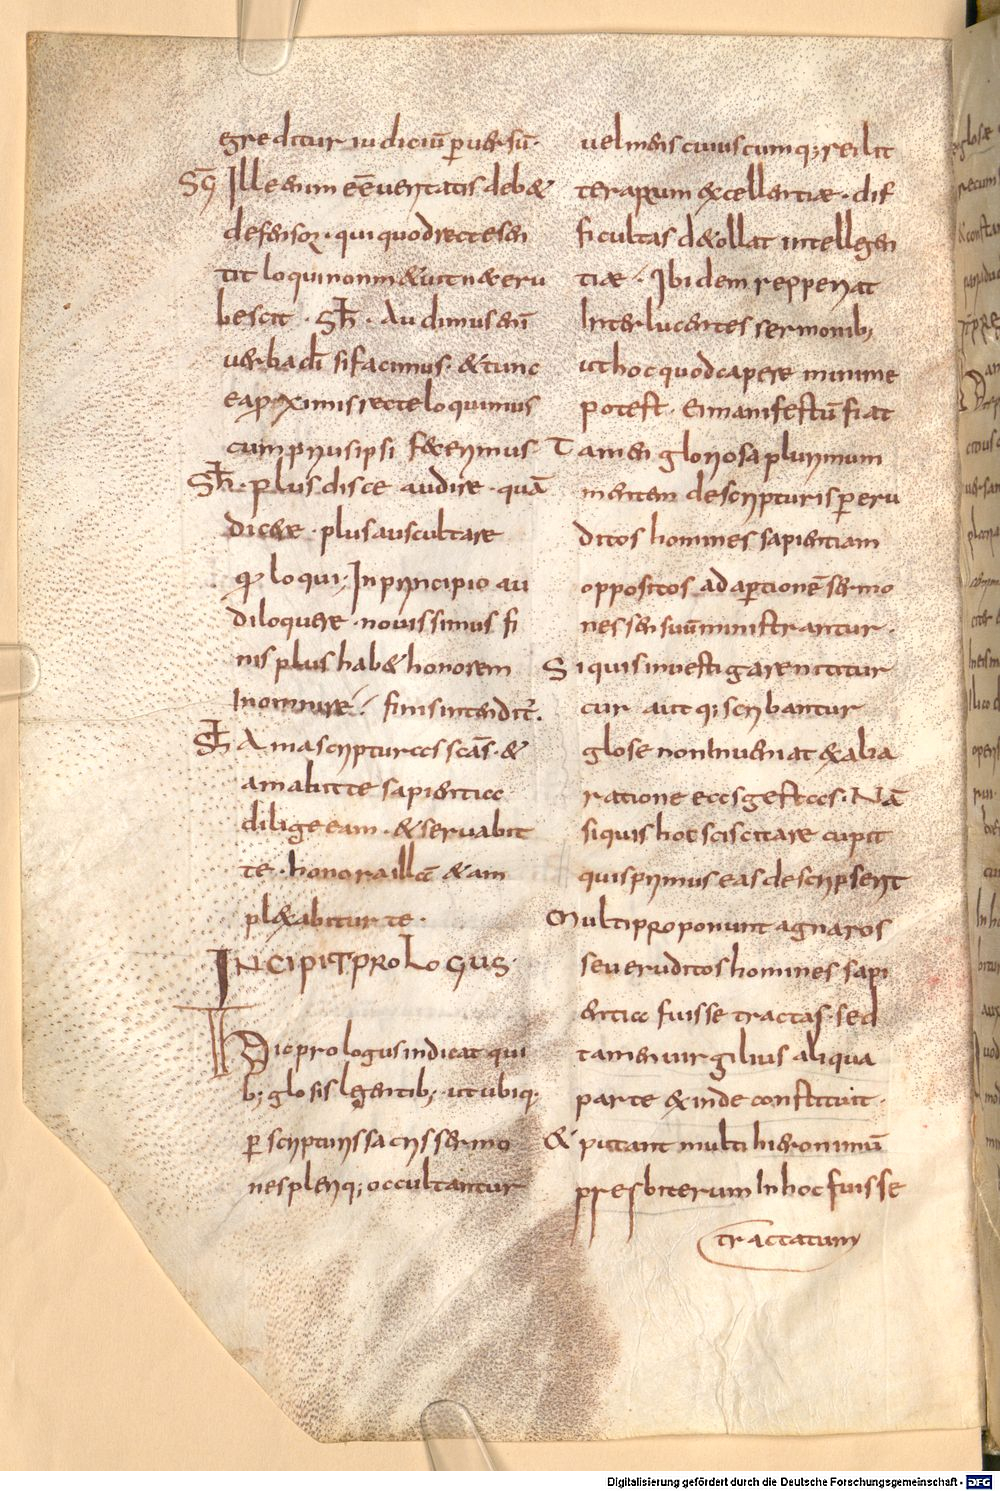 greditur iudiciū ꝑuersū·
Sc̄s Ille enim ēē ueritatis deb&
defensor· qui quod recte sen
tit loqui non m&uit n& eru
bescit · Sh̄· Audimus enī
uerba dī si facimus· & tunc
ea proximis recte loquimus
cum prius ipsi fecerimus·
Sh̄· plus disce audire · quā
dicere · plus auscultare
quā loqui; In principio au
di loquere · nouissimus fi
nis plus hab& honorem
In omni re · finis intendit̄·
Sh̄ Ama scripturas scās· &
amabit te sapientia
dilige eam· & seruabit
te· honora illā & am
plexabitur te·
INCIPIT PROLOGUS·
Hic prologus indicat qui
b; glosis legentib; ut ubiq·
ꝑ scripturis sacris sermo
nes pleriq; occultantur
uel mens cuiuscumq; rei lit
terarum excellentiae · dif
ficultas d&ollat intellegen
tiae · Ibidem repperiat
Interlucentes sermonib;
ut hoc quod capere minime
potest · ei manifestū fiat
Tamen gloriosa plurimum
mentem de scripturis ꝑ eru
ditos homines sapientiam
oppositos ad aꝑtionē sermo
nes sensuū ministrantur·
Si quis inuestigare nititur
cur aut q; scribantur
glose non Inueniat & alia
ratione eas gestas· Nā
si quis hoc sciscitare cupit
quis primus eas descripserit
Multi proponunt agnaros
seu eruditos homines sapi
entia fuisse tractas· sed
tamen uirgilius aliqua
parte exinde constituit·
& putant multi hieronimū
presbiterum In hoc fuisse
tractatum
Digitalisierung gefördert durch die Deutsche Forschungsgemeinschaft - DFG